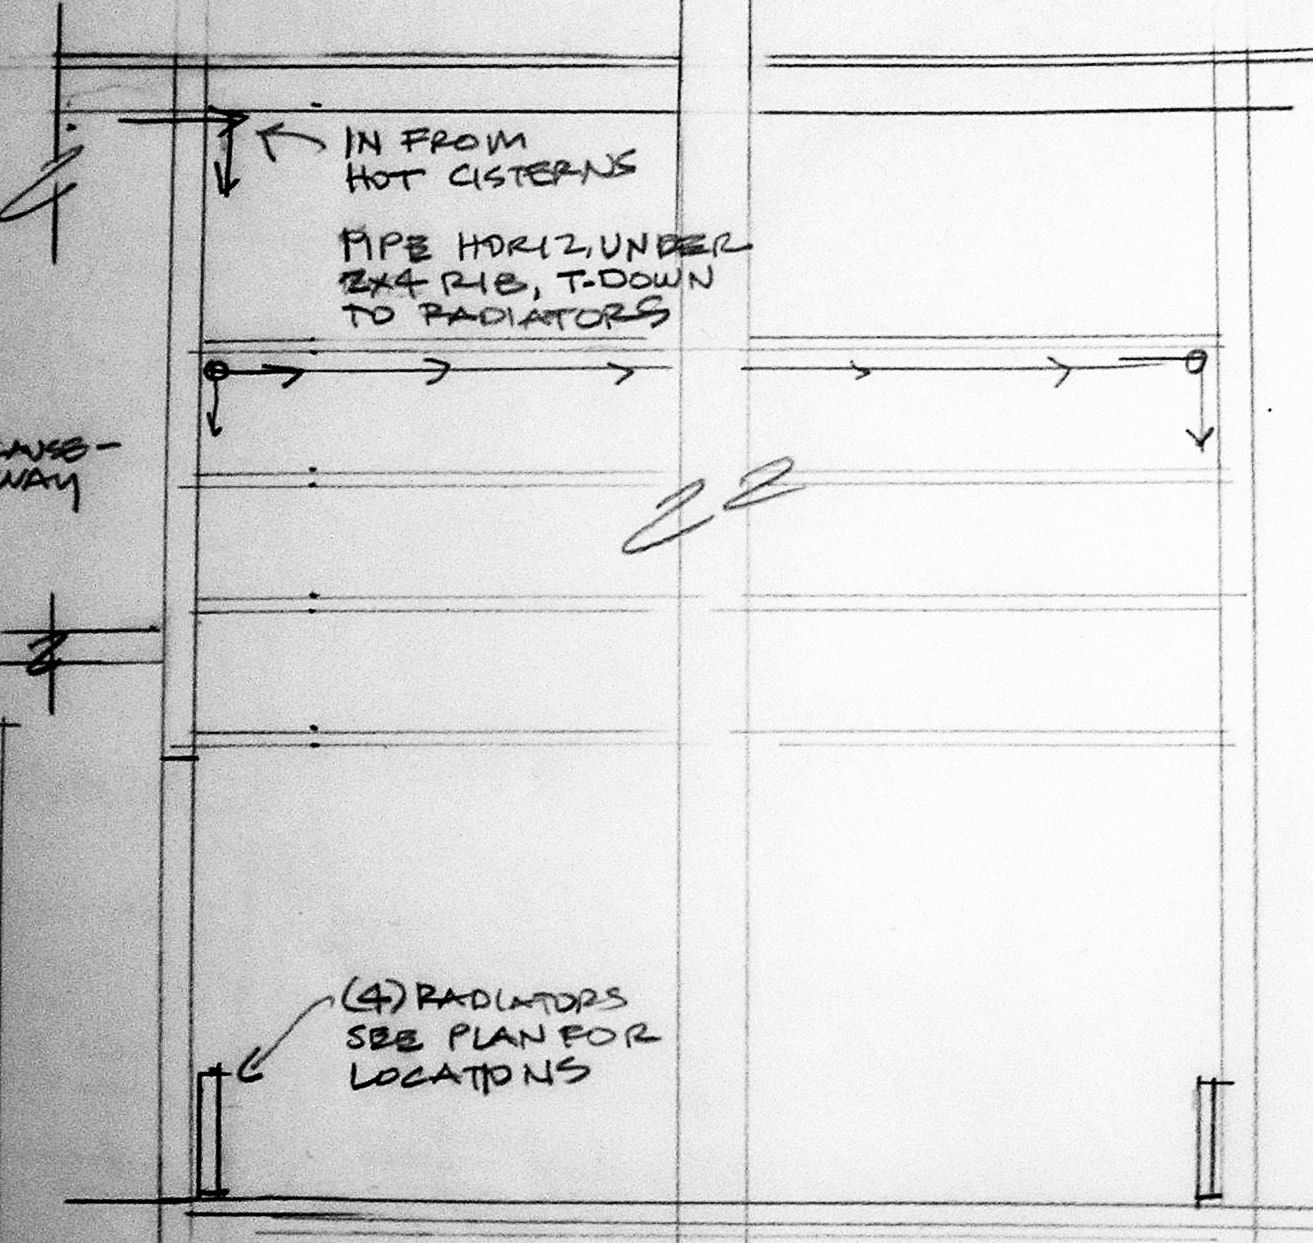 IN FROM
HOT CISTERNS
PIPE HORIZ. UNDER
2x4 RIB, T-DOWN
TO RADIATORS
CAUSE-
WAY
(4) RADIATORS
SEE PLAN FOR
LOCATIONS